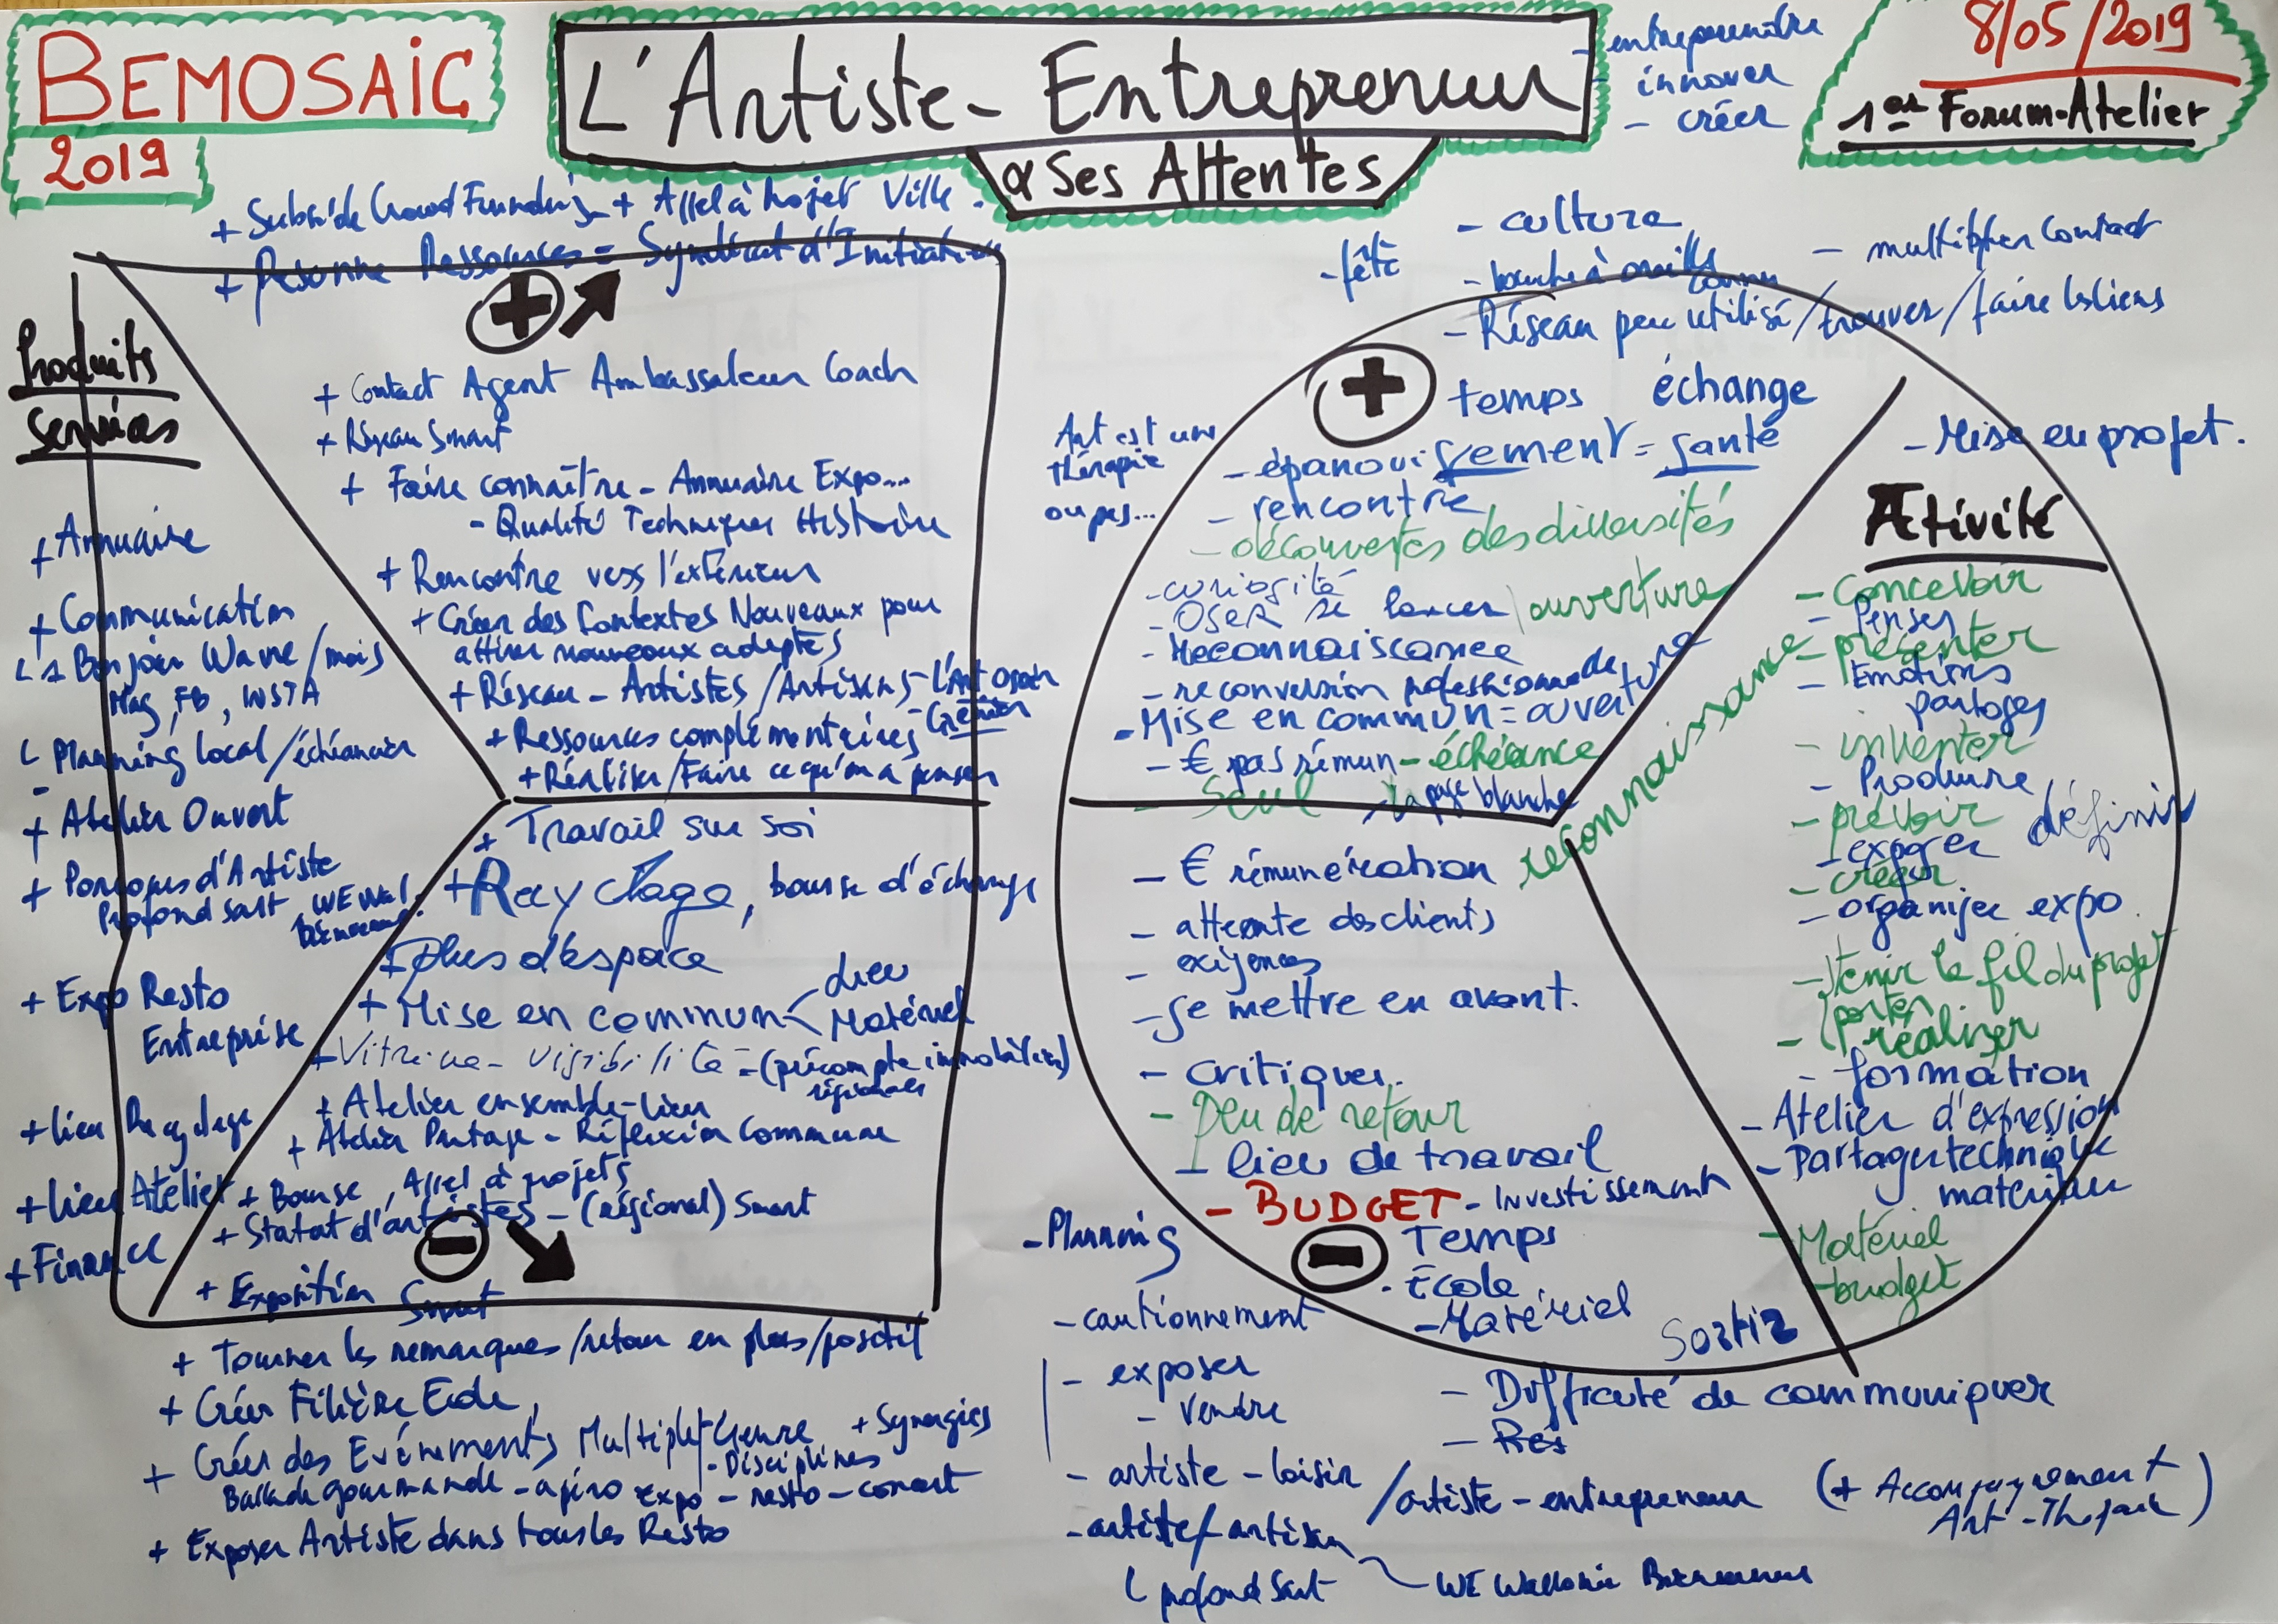 BEMOSAIC
2019
L'Artiste-Entrepreneur
& Ses Attentes
- entreprendre
innover
- créer
8/05/2019
1er Forum-Atelier
+ Subside Crowd Funding + Appel à Projet Ville
+ Personne Ressources = Syndicat d'Initiatives
Produits
Services
+ Annuaire
+ Communication
L 1 Bonjour Wavre/mois
Mag, FB, INSTA
L Planning local/échéancier
-
+ Atelier Ouvert
+ Parcours d'Artiste
Profondsart WE Wal
Bienvenue
+ Expo Resto
Entreprise
+ Lieu Recyclage
+ Lieu Atelier
+ Finance
+ Contact Agent Ambassadeur Coach
+ Réseau Smart
+ Faire connaître - Annuaire Expo...
- Qualité Techniques Histoire
+ Rencontre vers l'extérieur
+ Créer des Contextes Nouveaux pour
attirer nouveaux adeptes
+ Réseau - Artistes/Artisans -
+ Ressources complémentaires - Grenier
+ Réaliser/Faire ce qu'on a penser
+ Travail sur soi
+ Recyclage, bourse d'échange
+ plus d'espace
+ Mise en commun < Lieu
Matériel
+ Vitrine - Visibilité = (précompte immobilier)
régionales
+ Atelier ensemble - lieu
+ Atelier Partage - Réflexion Commune
+ Bourse, Appel à projets
+ Statut d'artistes - (régional) Smart
+ Exposition Smart
+ Tourner les remarques/retour en plus/positif
+ Créer Filière Ecole
+ Créer des Evénements Multiples/Genre + Synergies
- Disciplines
Ballade gourmande - apéro expo - resto - concert
+ Exposer Artiste dans tous les Resto
- culture
- fête
- bouche à oreille
connu
- multiplier Contact
- Réseau peu utilisé/trouver/faire les liens
temps échange
Art est une
thérapie
ou pas...
- épanouissement = santé
- rencontre
- découvertes des diversités
- curiosité
- OSER se lancer / ouverture
- Reconnaissance
- reconversion professionnelle
- Mise en commun = ouverture
- € pas rémun - échéance
- Seul - la page blanche
reconnaissance
- Mise en projet.
Activité
- concevoir
- Penser
- présenter
- Emotions
partages
- inventer
- Produire
- prévoir définir
- exposer
- créer
- organiser expo
- tenir le fil du projet
(porter
- réaliser
- formation
- Atelier d'expression
- Partager technique
matériau
- Matériel
- budget
- € rémunération
- attente des clients
- exigences
- se mettre en avant.
- critiques.
- Peu de retour
- lieu de travail
- BUDGET - Investissement
- Planning
Temps
- Ecole
- Matériel
Sortir
- cautionnement
- exposer
- vendre
- Difficuté de communiquer
- Rés
- artiste - loisir /artiste - entrepreneur
(+ Accompagnement
Art - Thérapie)
- artiste/artisan
L profond Sart
WE Wallonie Bienvenue